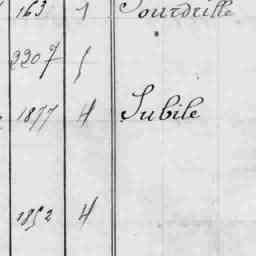 163 1 Sourdille
2207 1
1877 4 Jubile
1852 4